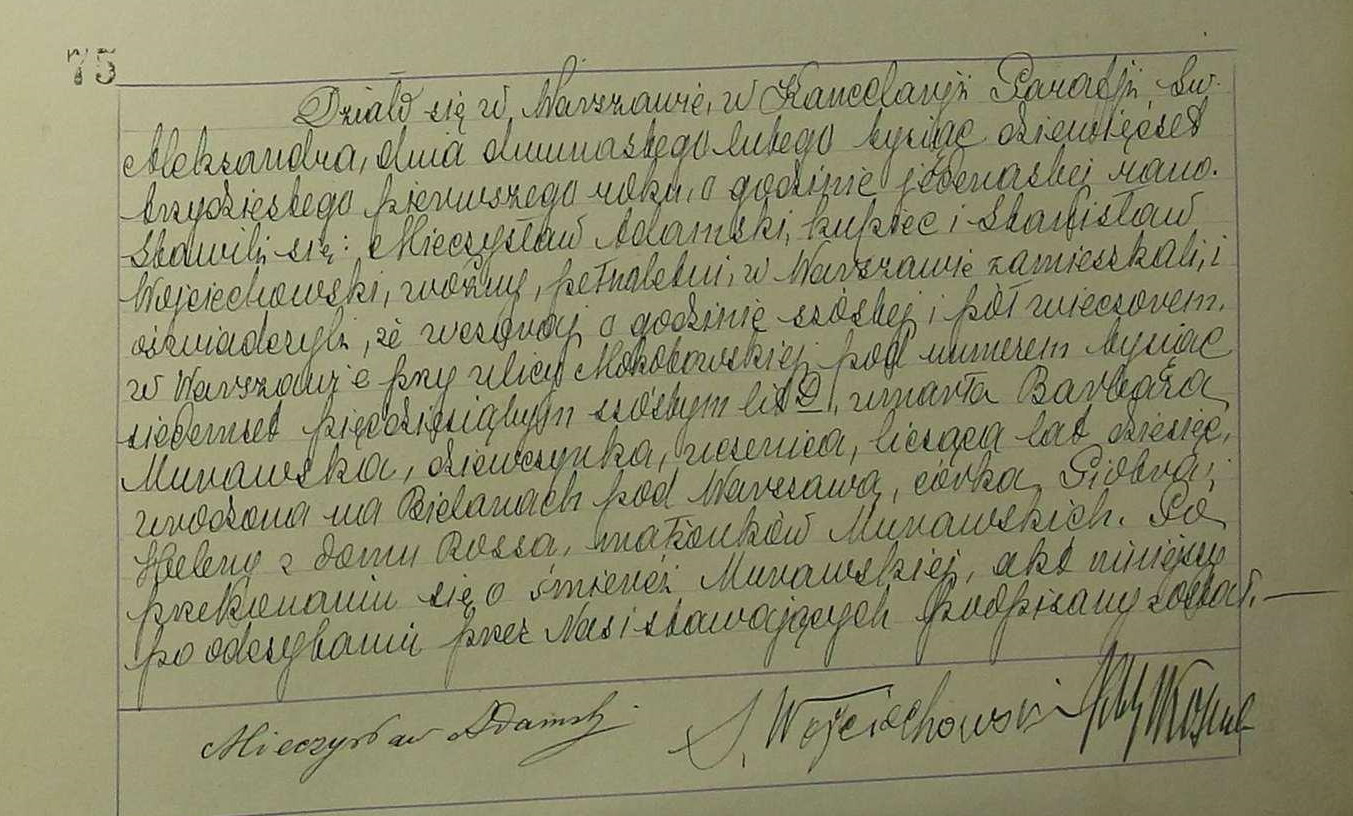 75
Działo się w Warszawie, w Kancelarji Parafji Św.
Aleksandra, dnia dwunastego lutego tysiąc dziewięćset
trzydziestego pierwszego roku, o godzinie jedenastej rano.
Stawili się: Mieczysław Adamski, kupiec i Stanisław
Wojciechowski, woźny, pełnoletni, w Warszawie zamieszkali, i
oświadczyli, że wczoraj o godzinie szóstej i pół wieczorem,
w Warszawie przy ulicy Mokotowskiej pod numerem tysiąc
siedemset pięćdziesiątym szóstym lit D, umarła Barbara
Murawska, dziewczynka, uczenica, licząca lat dziesięć,
urodzona na Bielanach pod Warszawą, córka Piotra i
Heleny z domu Rossa, małżonków Murawskich. Po
przekonaniu się o śmierci Murawskiej, akt niniejszy
po odczytaniu przez Nas i stawających podpisany został. —
Mieczysław Adamski S. Wojciechowski